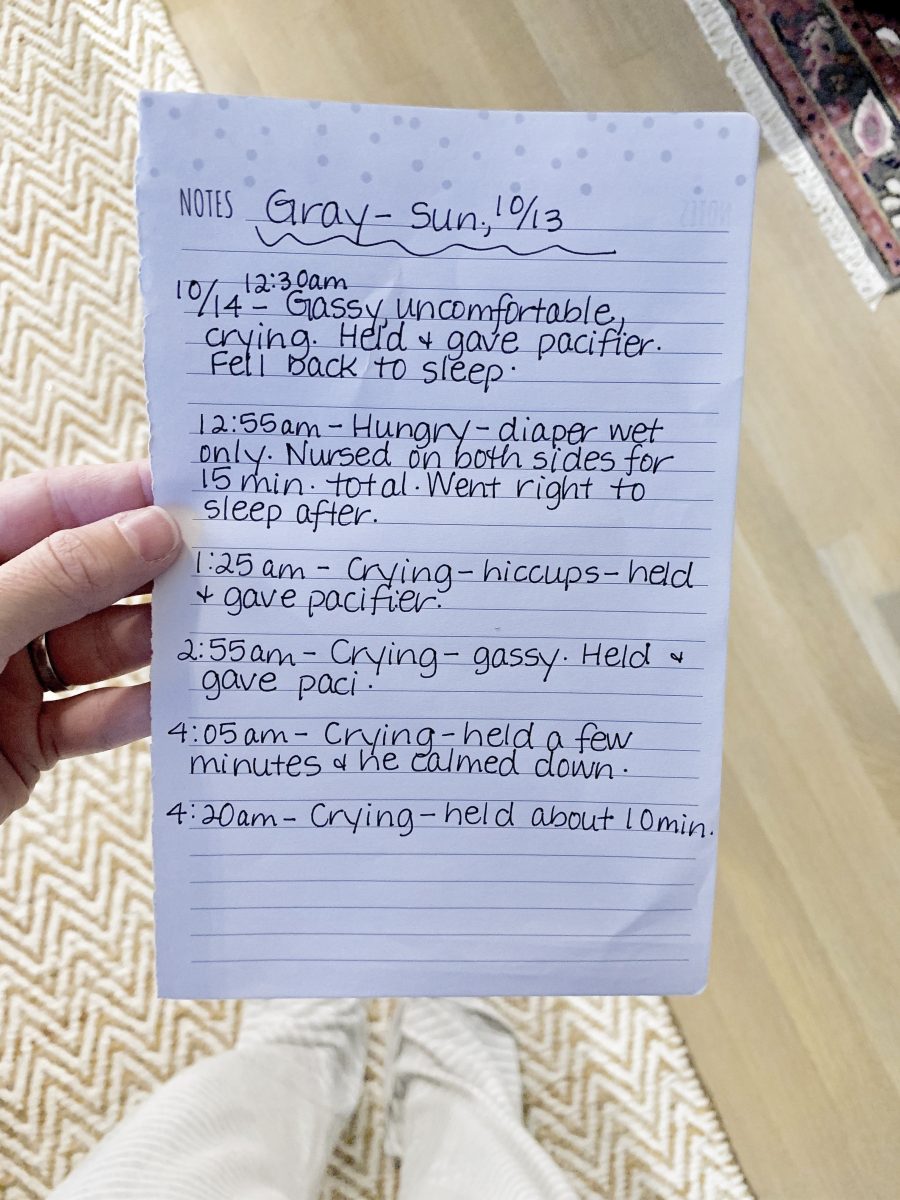 NOTES Gray - Sun., 10/13
12:30am
10/14 - Gassy, uncomfortable,
crying. Held & gave pacifier.
Fell back to sleep.
12:55am - Hungry - diaper wet
only. Nursed on both sides for
15 min. total. Went right to
sleep after.
1:25 am - Crying - hiccups - held
& gave pacifier.
2:55am - Crying - gassy. Held &
gave paci.
4:05am - Crying - held a few
minutes & he calmed down.
4:20am - Crying - held about 10min.